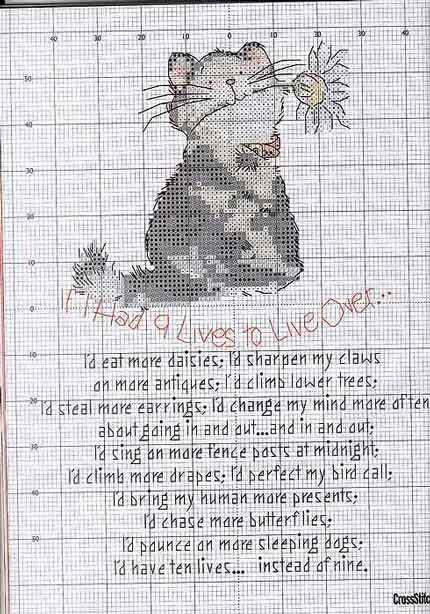 If I Had 9 Lives to Live Over...
I'd eat more daisies; I'd sharpen my claws
on more antiques; I'd climb lower trees;
I'd steal more earrings; I'd change my mind more often
about going in and out...and in and out;
I'd sing on more fence posts at midnight;
I'd climb more drapes; I'd perfect my bird call;
I'd bring my human more presents;
I'd chase more butterflies;
I'd pounce on more sleeping dogs;
I'd have ten lives... instead of nine.
CrossStit